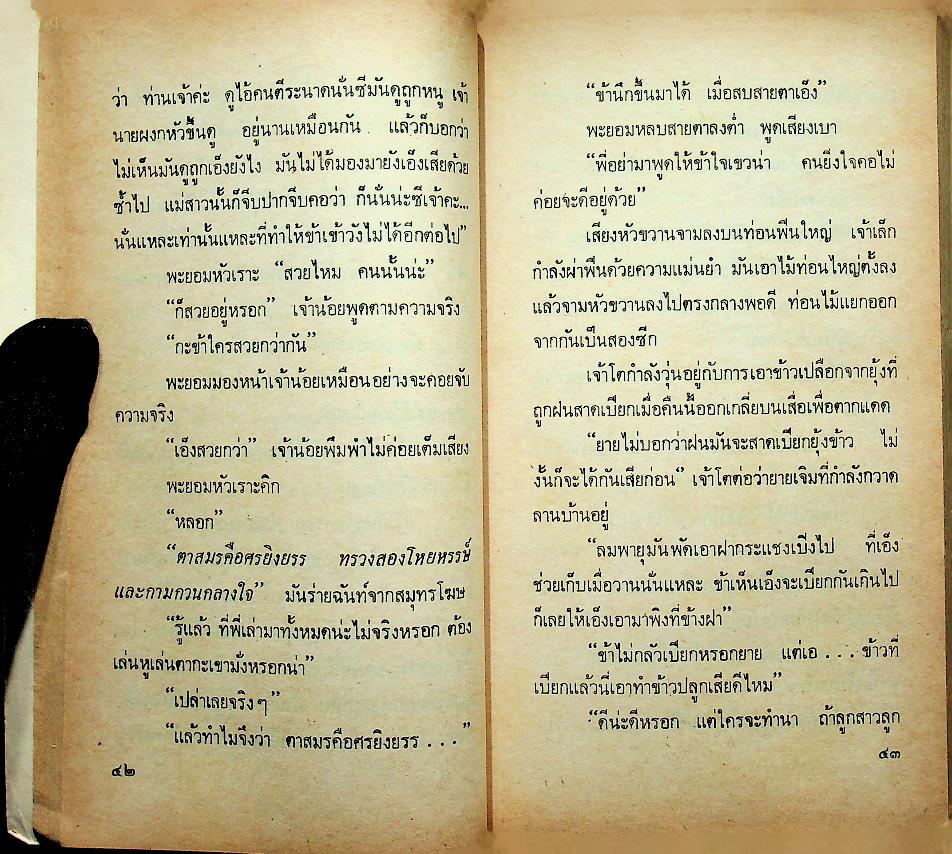 ว่า ท่านเจ้าค่ะ ดูไอ้คนตีระนาดนั่นซีมันดูถูกหนู เจ้า
นายผงกหัวขึ้นดู อยู่นานเหมือนกัน แล้วก็บอกว่า
ไม่เห็นมันดูถูกเอ็งยังไง มันไม่ได้มองมายังเอ็งเสียด้วย
ซ้ำไป แม่สาวนั้นก็จีบปากจีบคอว่า ก็นั่นน่ะซีเจ้าคะ...
นั่นแหละเท่านั้นแหละที่ทำให้ข้าเข้าวังไม่ได้อีกต่อไป”
พะยอมหัวเราะ “สวยไหม คนนั้นน่ะ”
“ก็สวยอยู่หรอก” เจ้าน้อยพูดตามความจริง
“กะข้าใครสวยกว่ากัน”
พะยอมมองหน้าเจ้าน้อยเหมือนอย่างจะคอยจับ
ความจริง
“เอ็งสวยกว่า” เจ้าน้อยพึมพำไม่ค่อยเต็มเสียง
พะยอมหัวเราะคิก
“หลอก”
“ตาสมรคือศรยิงยรร ทรวงสองโหยหรรษ์
และกามกวนกลางใจ” มันร่ายฉันท์จากสมุทรโฆษ
“รู้แล้ว ที่พี่เล่ามาทั้งหมดน่ะไม่จริงหรอก ต้อง
เล่นหูเล่นตากะเขามั่งหรอกน่า”
“เปล่าเลยจริงๆ”
“แล้วทำไมจึงว่า ตาสมรคือศรยิงยรร . . .”
๔๒
“ข้านึกขึ้นมาได้ เมื่อสบสายตาเอ็ง”
พะยอมหลบสายตาลงต่ำ พูดเสียงเบา
“พี่อย่ามาพูดให้ข้าใจเขวน่า คนยิ่งใจคอไม่
ค่อยจะดีอยู่ด้วย”
เสียงหัวขวานจามลงบนท่อนฟืนใหญ่ เจ้าเล็ก
กำลังผ่าฟืนด้วยความแม่นยำ มันเอาไม้ท่อนใหญ่ตั้งลง
แล้วจามหัวขวานลงไปตรงกลางพอดี ท่อนไม้แยกออก
จากกันเป็นสองซีก
เจ้าโตกำลังวุ่นอยู่กับการเอาข้าวเปลือกจากยุ้งที่
ถูกฝนสาดเปียกเมื่อคืนนี้ออกเกลี่ยบนเสื่อเพื่อตากแดด
“ยายไม่บอกว่าฝนมันจะสาดเปียกยุ้งข้าว ไม่
งั้นก็จะได้กันเสียก่อน” เจ้าโตต่อว่ายายเจิมที่กำลังกวาด
ลานบ้านอยู่
“ลมพายุมันพัดเอาฝากระแชงเปิงไป ที่เอ็ง
ช่วยเก็บเมื่อวานนั่นแหละ ข้าเห็นเอ็งจะเปียกกันเกินไป
ก็เลยให้เอ็งเอามาพิงที่ข้างฝา”
“ข้าไม่กลัวเปียกหรอกยาย แต่เอ . . . ข้าวที่
เปียกแล้วนี่เอาทำข้าวปลูกเสียดีไหม”
“ดีน่ะดีหรอก แต่ใครจะทำนา ถ้าลูกสาวลูก
๔๓